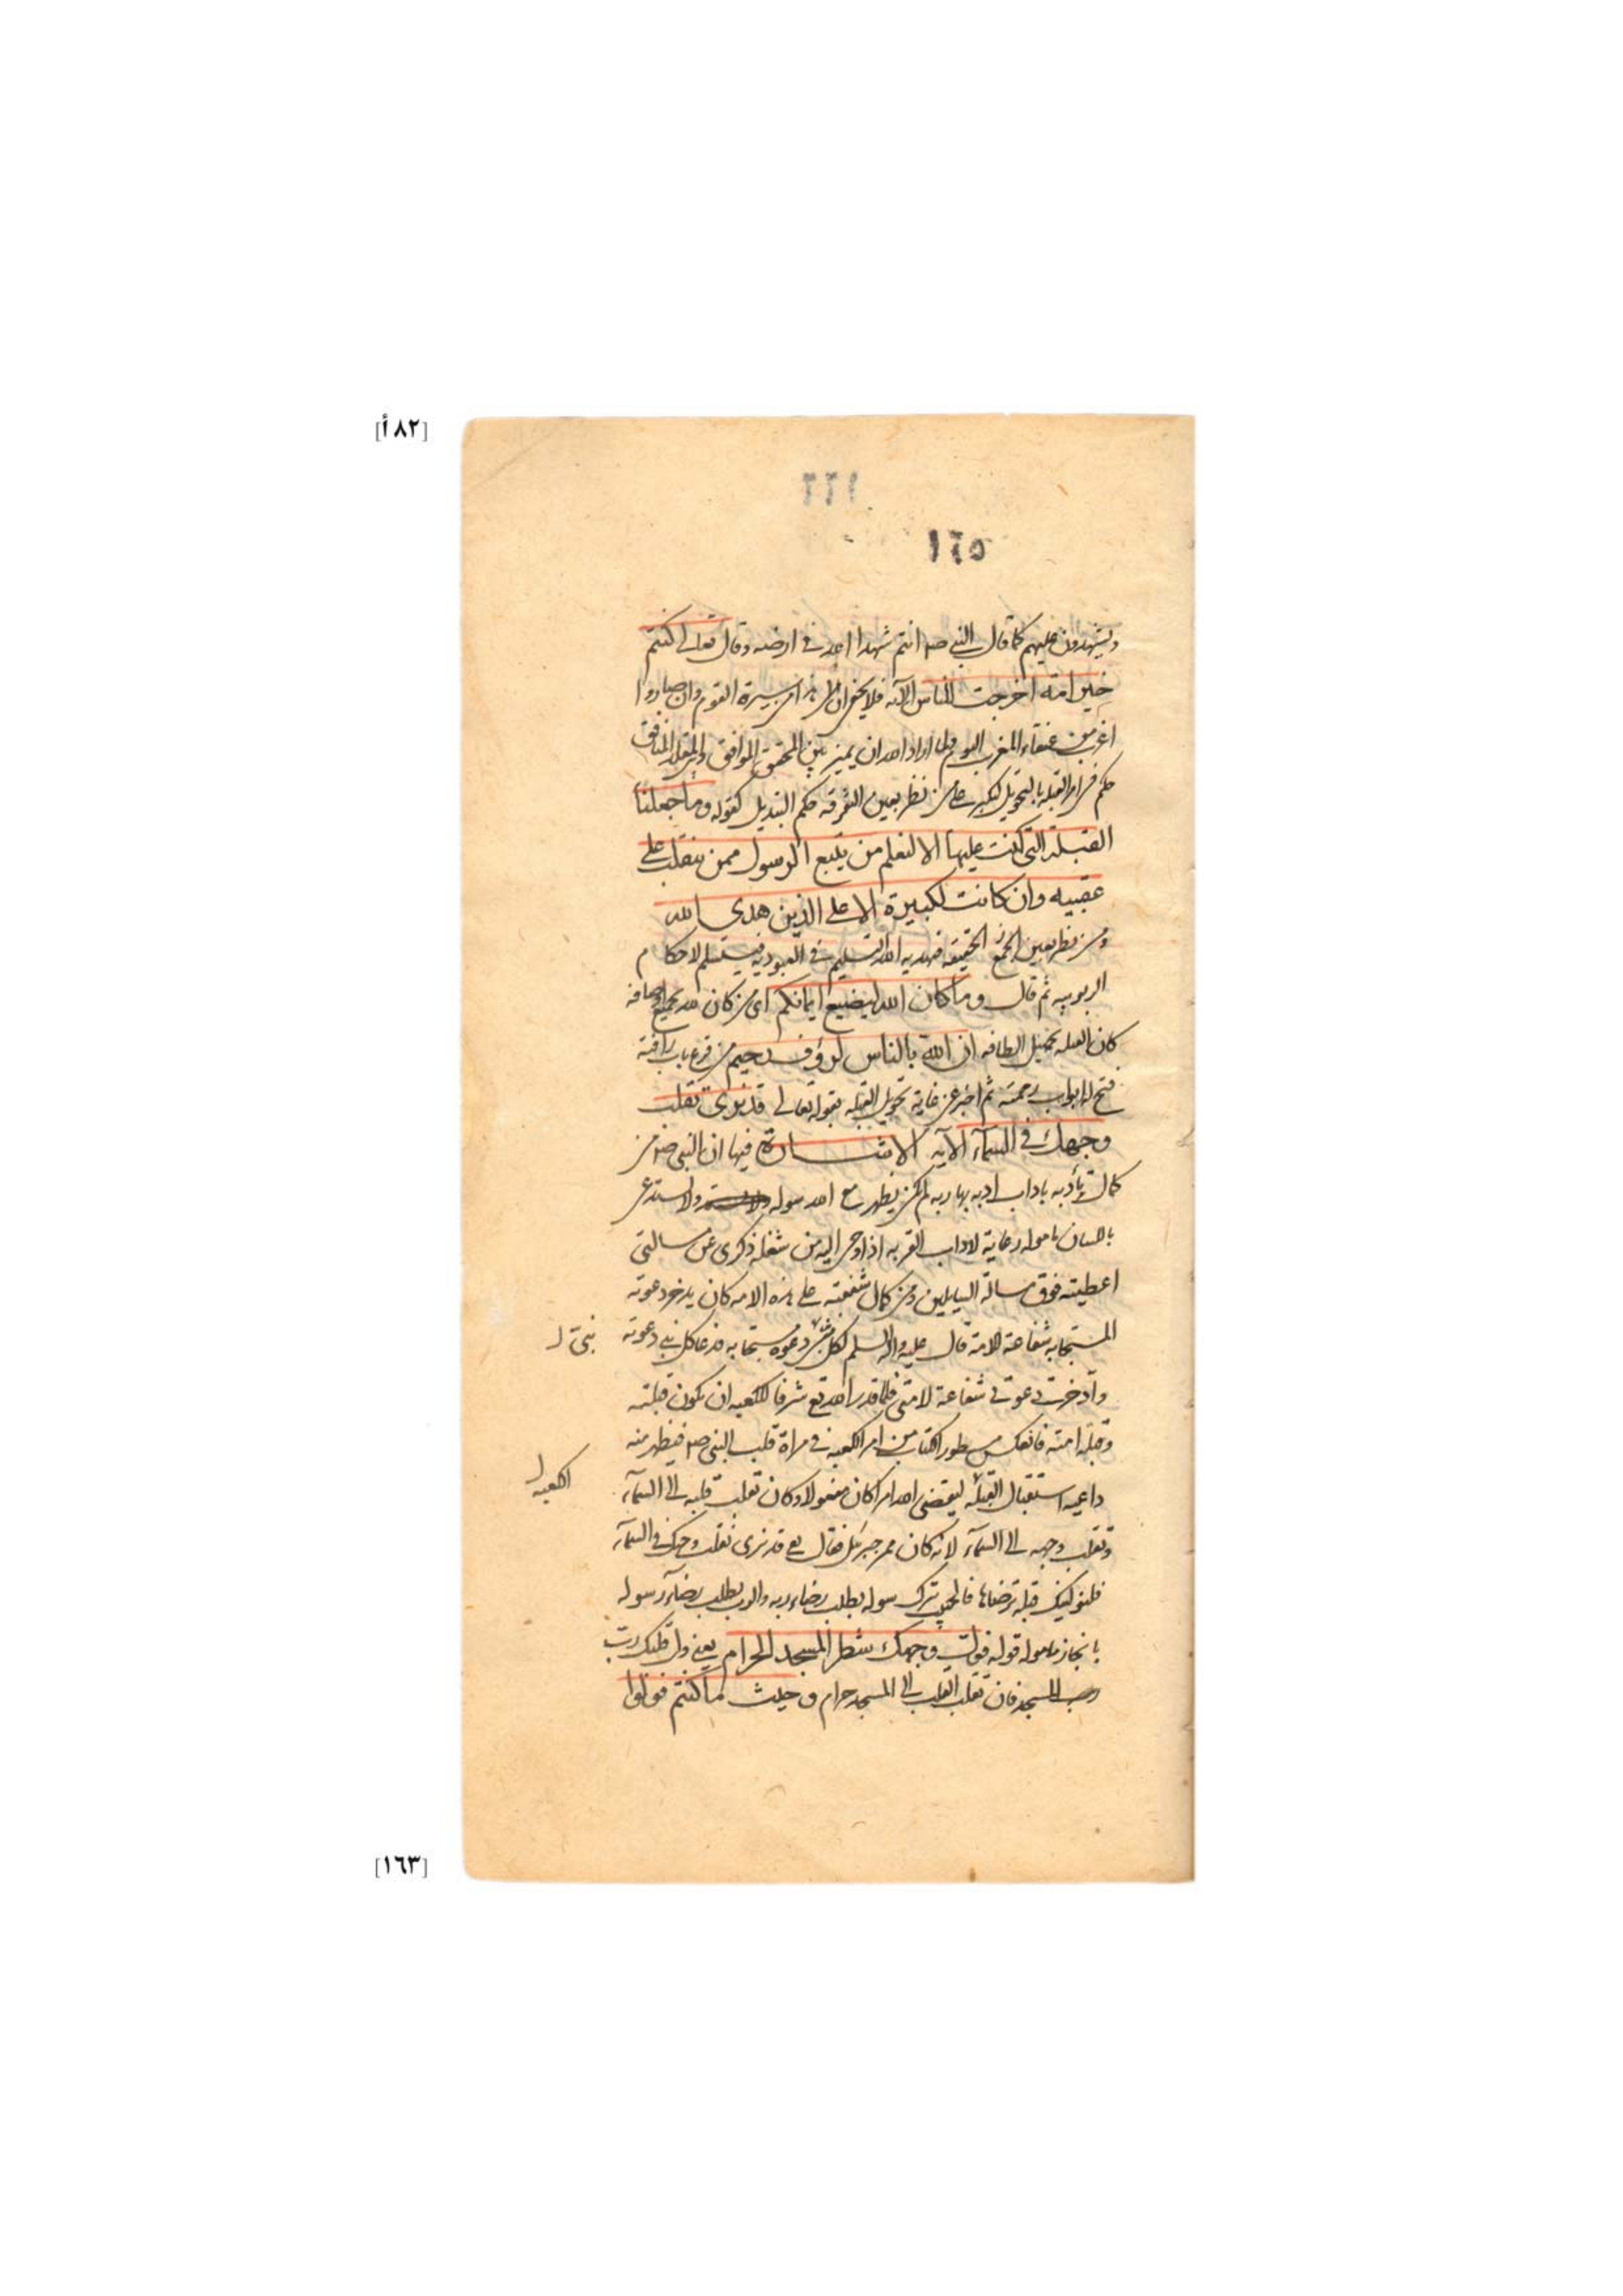 [٨٢أ]
١٦٦
١٦٥
ويشهدون عليهم كما قال النبي صم انتم شهدا الله في ارضه وقال تعالى كنتم
خير امة اخرجت للناس الآية فلا يخفى ان هذا من سيرة القوم وان صاروا
اغرب من عنقاء المغرب اليوم ولما اراد الله ان يميز بين المحقق الموافق والمقلد المنافق
حكم في امر القبلة بالتحويل ليكبر على من نظر بعين التفرقه حكم التبديل كقوله وما جعلنا
القبلة التي كنت عليها الا لنعلم من يتبع الرسول ممن ينقلب على
عقبيه وان كانت لكبيرة الا على الذين هدى الله
ومن نظر بعين الجمع الحقيقه فهديه الله التسليم في العبوديه فيستسلم لاحكام
الربوبيه ثم قال وما كان الله ليضيع ايمانكم اى من كان لله بجميع اوصافه
كان الله له بجميل الطافه ان الله بالناس لرؤف رحيم من قرع باب رافته
فتح له ابواب رحمته ثم اخبر عن غاية تحويل القبله بقوله تعالى قد نرى تقلب
وجهك في السمآء الآيه الاشارة فيها ان النبي صم من
كمال تأدبه باداب ادبه بها ربه لم يكن يظهر مع الله سوله ولا يستدعى
باللسان ماموله رعاية لاداب القربه اذ اوحى اليه من شغله ذكرى عن مسالتى
اعطيته فوق مسالة السايلين ومن كمال شفقته على هذه الامه كان يدخر دعوته
المستجابه شفاعة لامته قال عليه واله السلم لكل دعوة مستجابه قد دعا كل نبي دعوته
نبى ل
وادخرت دعوتى شفاعة لامتى فلما قدر الله تع شرفا للكعبه ان يكون قبلته
وقبلة امته فانعكس سطور الكتاب من امر الكعبة في مراة قلب النبي صم فيظهر منه
داعيه استقبال القبله ليقضى الله امرا كان مفعولا وكان تقلب قلبه الى السمآء
الكعبه ل
وتقلب وجهه الى السمآء لانه كان ممر جبرئيل فقال تع قد نرى تقلب وجهك في السمآء
فلنولينك قبلة ترضاها فالحبيب ترك سوله بطلب رضاء ربه والرب يطلب رضآء رسوله
بانجاز مامولہ قوله فول وجهك شطر المسجد الحرام يعنى ول قلبك رب
المسجد فان تقلب القلب الى المسجد حرام وحيث ما كنتم فولوا
[١٦٣]